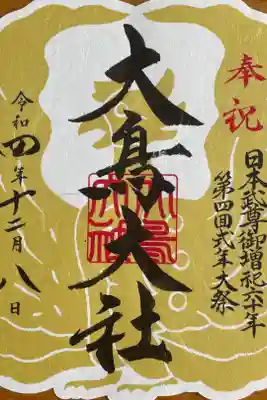 奉祝
日本武尊御増祀六十年
第四回式年大祭
大鳥大社
令和四年十二月八日